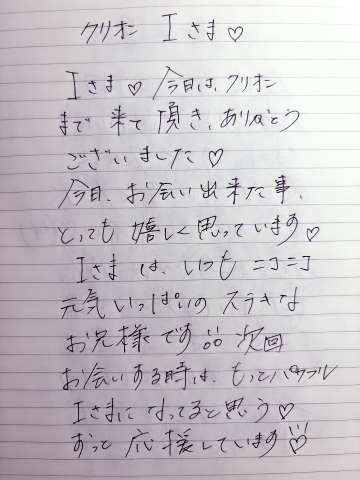 クリオン Iさま♡
Iさま♡今日は、クリオン
まで 来て 頂き、ありがとう
ございました♡
今日、お会い出来た事、
とっても 嬉しく思っています♡
Iさま は、いつも ニコニコ
元気いっぱいの ステキな
お兄様です 次回
お会いする時は、もっとパワフル
Iさまに なってると思う♡
ずっと 応援しています♡